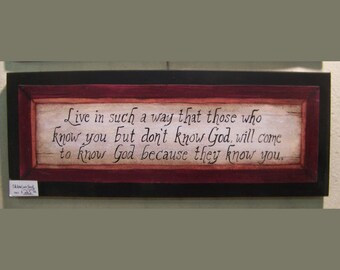 Live in such a way that those who
know you but don't know God, will come
to know God because they know you.